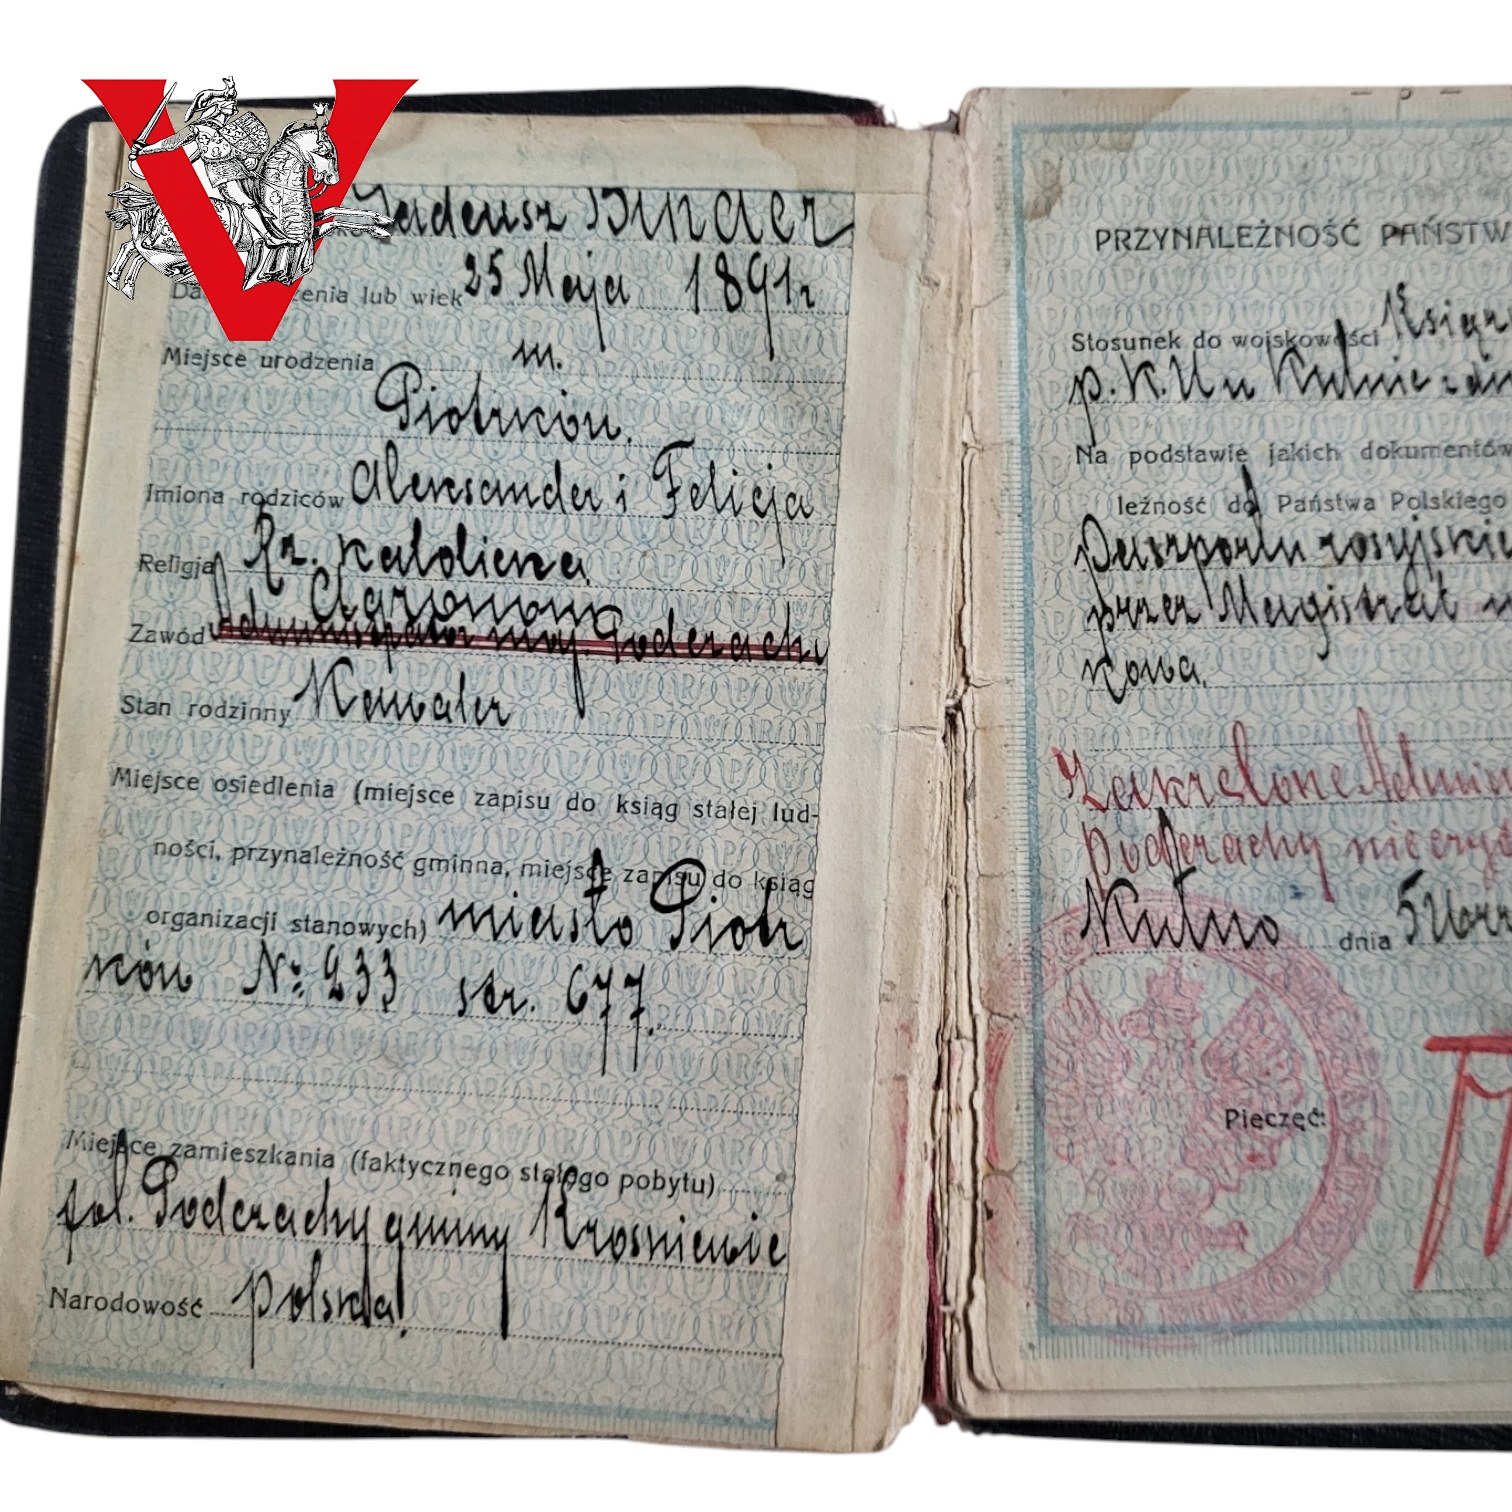 Tadeusz Binder
enia lub wiek 25 Maja 1891 r
Miejsce urodzenia m.
Piotrków.
Imiona rodziców Aleksander i Felicja
Religja Rz. katolicka
Agronom
Zawód Administrator maj. Poderachy
Stan rodzinny Kawaler
Miejsce osiedlenia (miejsce zapisu do ksiąg stałej lud-
ności, przynależność gminna, miejsce zapisu do ksiąg
organizacji stanowych) miasto Piotr
ków No: 233 str. 677.
Miejsce zamieszkania (faktycznego stałego pobytu)
fol. Poderachy gminy Krosniewice
Narodowość polska
PRZYNALEŻNOŚĆ PAŃSTW
Stosunek do wojskowości Książ
p. K. U w Kutnie
Na podstawie jakich dokumentów
leżność do Państwa Polskiego
Paszportu rosyjskie
przez Magistrat
kowa.
Zakreślone Admin
Poderachy nie
Kutno dnia 5
Pieczęć: